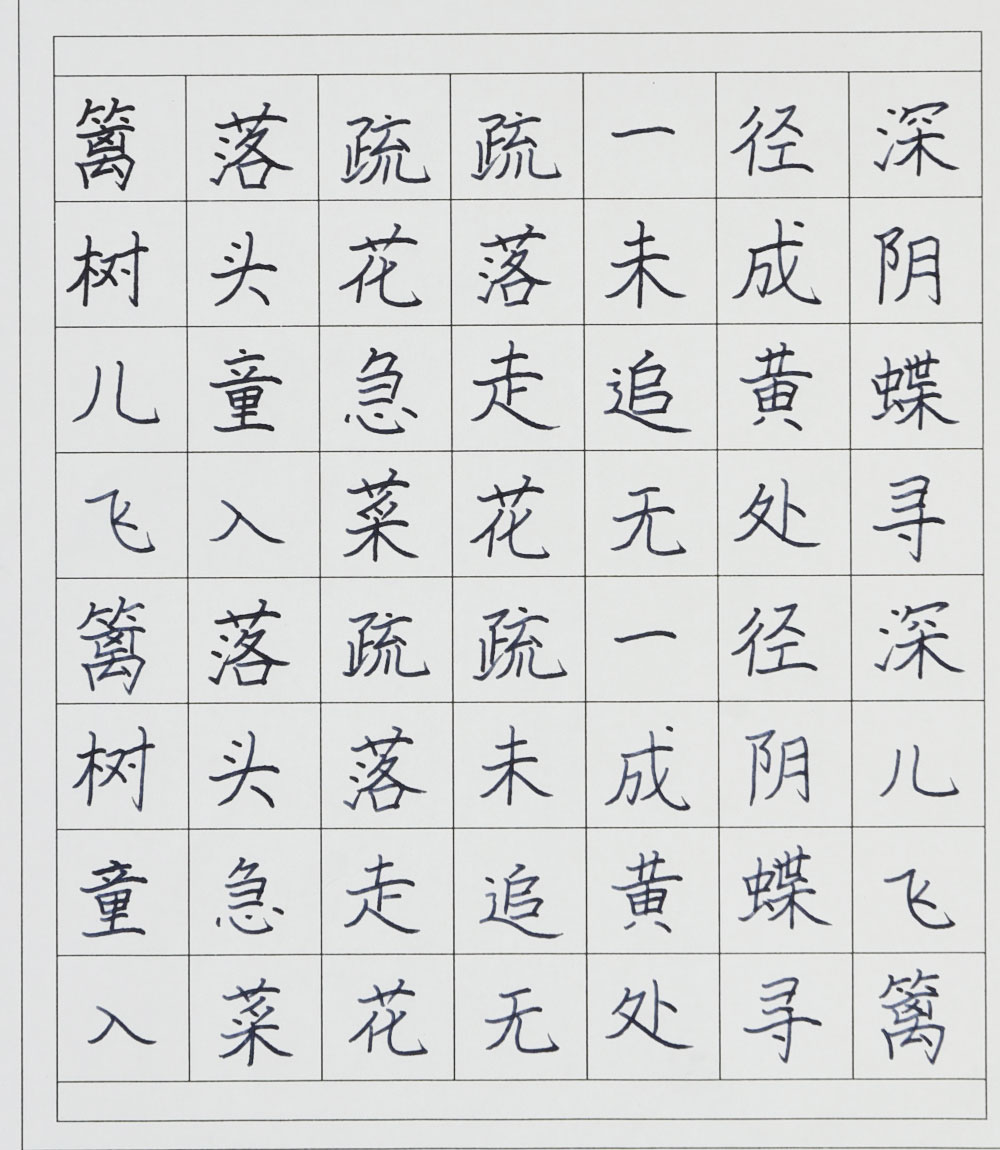 篱落疏疏一径深
树头花落未成阴
儿童急走追黄蝶
飞入菜花无处寻
篱落疏疏一径深
树头落未成阴儿
童急走追黄蝶飞
入菜花无处寻篱